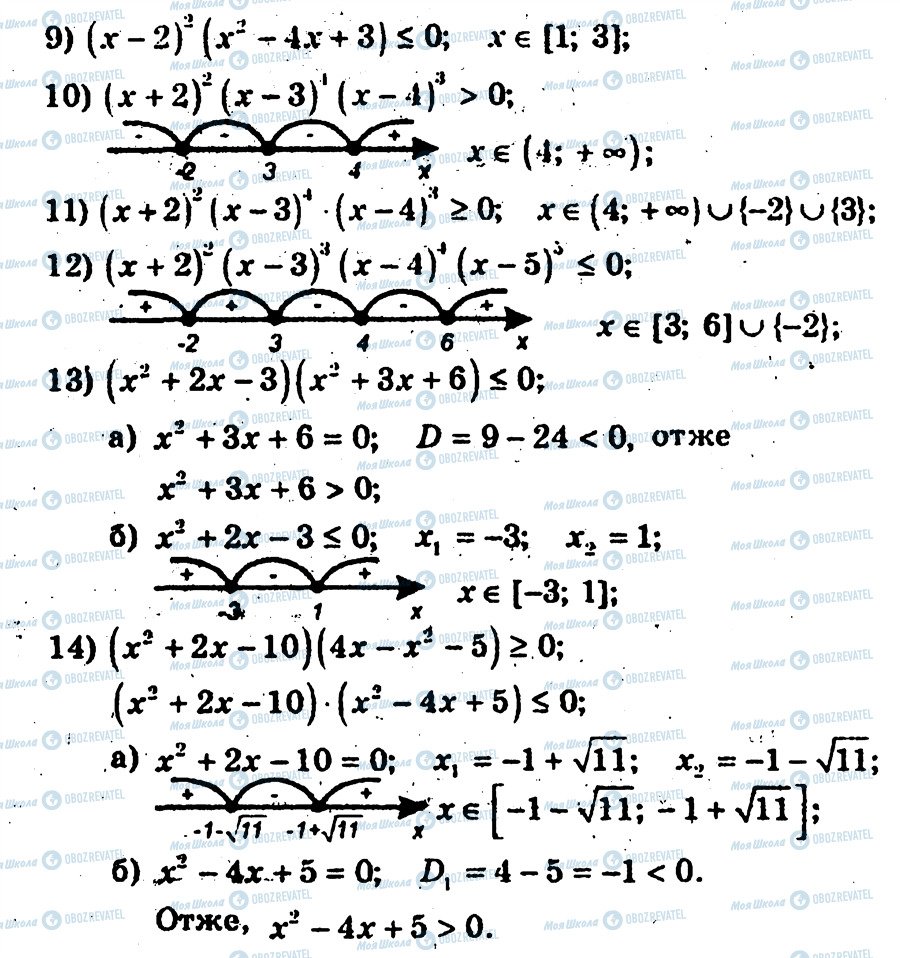 9) (x − 2)² (x² − 4x + 3) ≤ 0; x ∈ [1; 3];
10) (x + 2)² (x − 3)⁴ (x − 4)³ > 0;
- - - +
-2 3 4 x x ∈ (4; + ∞);
11) (x + 2)² (x − 3)⁴ · (x − 4)³ ≥ 0; x ∈ (4; + ∞) ∪ {−2} ∪ {3};
12) (x + 2)² (x − 3)³ (x − 4)⁴ (x − 5)⁵ ≤ 0;
+ + - - +
-2 3 4 6 x x ∈ [3; 6] ∪ {−2};
13) (x² + 2x − 3)(x² + 3x + 6) ≤ 0;
а) x² + 3x + 6 = 0; D = 9 − 24 < 0, отже
x² + 3x + 6 > 0;
б) x² + 2x − 3 ≤ 0; x₁ = −3; x₂ = 1;
+ - +
-3 1 x x ∈ [−3; 1];
14) (x² + 2x − 10)(4x − x² − 5) ≥ 0;
(x² + 2x − 10) · (x² − 4x + 5) ≤ 0;
а) x² + 2x − 10 = 0; x₁ = −1 + √11; x₂ = −1 − √11;
+ - +
-1-√11 -1+√11 x x ∈ [−1 − √11; − 1 + √11];
б) x² − 4x + 5 = 0; D₁ = 4 − 5 = −1 < 0.
Отже, x² − 4x + 5 > 0.